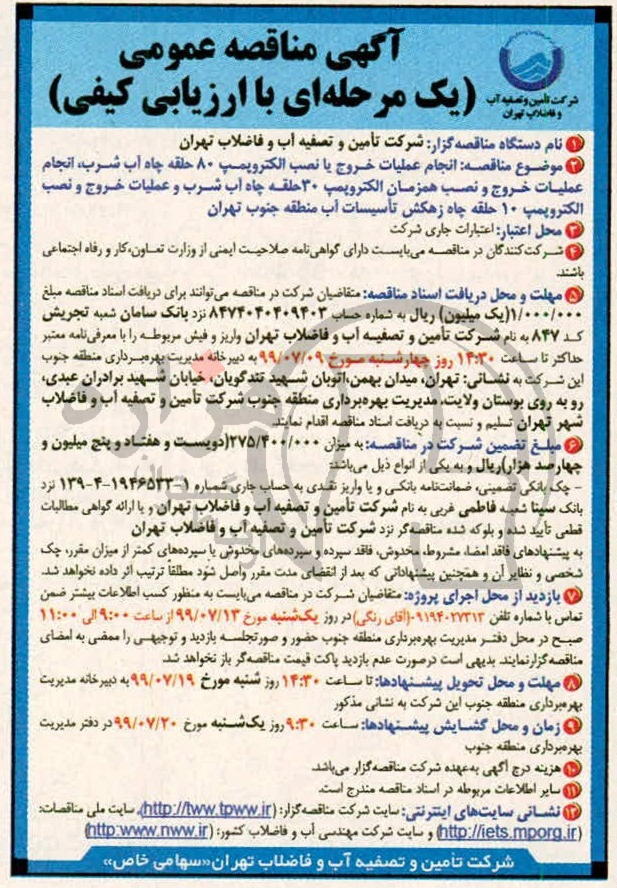 آگهی مناقصه عمومی
(یک مرحله‌ای با ارزیابی کیفی)
شرکت تأمین و تصفیه آب
و فاضلاب تهران
۱ نام دستگاه مناقصه‌گزار: شرکت تأمین و تصفیه آب و فاضلاب تهران
۲ موضوع مناقصه: انجام عملیات خروج یا نصب الکتروپمپ ۸۰ حلقه چاه آب شرب، انجام
عملیات خروج و نصب همزمان الکتروپمپ ۳۰حلقه چاه آب شرب و عملیات خروج و نصب
الکتروپمپ ۱۰ حلقه چاه زهکش تأسیسات آب منطقه جنوب تهران
۳ محل اعتبار: اعتبارات جاری شرکت
۴ شرکت‌کنندگان در مناقصه می‌بایست دارای گواهی‌نامه صلاحیت ایمنی از وزارت تعاون،کار و رفاه اجتماعی
باشند.
۵ مهلت و محل دریافت اسناد مناقصه: متقاضیان شرکت در مناقصه می‌توانند برای دریافت اسناد مناقصه مبلغ
۱/۰۰۰/۰۰۰(یک میلیون) ریال به شماره حساب ۸۴۷۴۰۴۰۴۰۹۴۰۳ نزد بانک سامان شعبه تجریش
کد ۸۴۷ به نام شرکت تأمین و تصفیه آب و فاضلاب تهران واریز و فیش مربوطه را با معرفی‌نامه معتبر
حداکثر تا ساعت ۱۴:۳۰ روز چهارشنبه مورخ ۹۹/۰۷/۰۹ به دبیرخانه مدیریت بهره‌برداری منطقه جنوب
این شرکت به نشانی: تهران، میدان بهمن،اتوبان شهید تندگویان، خیابان شهید برادران عبدی،
رو به روی بوستان ولایت، مدیریت بهره‌برداری منطقه جنوب شرکت تأمین و تصفیه آب و فاضلاب
شهر تهران تسلیم و نسبت به دریافت اسناد مناقصه اقدام نمایند.
۶ مبلغ تضمین شرکت در مناقصه: به میزان ۲۷۵/۴۰۰/۰۰۰(دویست و هفتاد و پنج میلیون و
چهارصد هزار)ریال و به یکی از انواع ذیل می‌باشد:
- چک بانکی تضمینی، ضمانت‌نامه بانکی و یا واریز نقدی به حساب جاری شماره ۱-۱۹۴۶۵۳۳-۴-۱۳۹ نزد
بانک سینا شعبه فاطمی غربی به نام شرکت تأمین و تصفیه آب و فاضلاب تهران و یا ارائه گواهی مطالبات
قطعی تأیید شده و بلوکه شده مناقصه‌گر نزد شرکت تأمین و تصفیه آب و فاضلاب تهران
به پیشنهادهای فاقد امضا، مشروط، مخدوش، فاقد سپرده و سپرده‌های مخدوش یا سپرده‌های کمتر از میزان مقرر، چک
شخصی و نظایر آن و همچنین پیشنهاداتی که بعد از انقضای مدت مقرر واصل شود مطلقاً ترتیب اثر داده نخواهد شد.
۷ بازدید از محل اجرای پروژه: متقاضیان شرکت در مناقصه می‌بایست به منظور کسب اطلاعات بیشتر ضمن
تماس با شماره تلفن ۰۹۱۹۴۰۲۷۳۱۳(آقای رنگی) در روز یک‌شنبه مورخ ۹۹/۰۷/۱۳ از ساعت ۹:۰۰ الی ۱۱:۰۰
صبح در محل دفتر مدیریت بهره‌برداری منطقه جنوب حضور و صورتجلسه بازدید و توجیهی را ممضی به امضای
مناقصه‌گزار نمایند. بدیهی است درصورت عدم بازدید پاکت قیمت مناقصه‌گر باز نخواهد شد.
۸ مهلت و محل تحویل پیشنهادها: تا ساعت ۱۴:۳۰ روز شنبه مورخ ۹۹/۰۷/۱۹ به دبیرخانه مدیریت
بهره‌برداری منطقه جنوب این شرکت به نشانی مذکور
۹ زمان و محل گشایش پیشنهادها: ساعت ۹:۳۰ روز یک‌شنبه مورخ ۹۹/۰۷/۲۰ در دفتر مدیریت
بهره‌برداری منطقه جنوب
۱۰ هزینه درج آگهی به‌عهده شرکت مناقصه‌گزار می‌باشد.
۱۱ سایر اطلاعات مربوطه در اسناد مناقصه مندرج است.
۱۲ نشانی سایت‌های اینترنتی: سایت شرکت مناقصه‌گزار: (http://tww.tpww.ir)، سایت ملی مناقصات:
(http://iets.mporg.ir) و سایت شرکت مهندسی آب و فاضلاب کشور: (http:www.nww.ir)
شرکت تأمین و تصفیه آب و فاضلاب تهران«سهامی خاص»